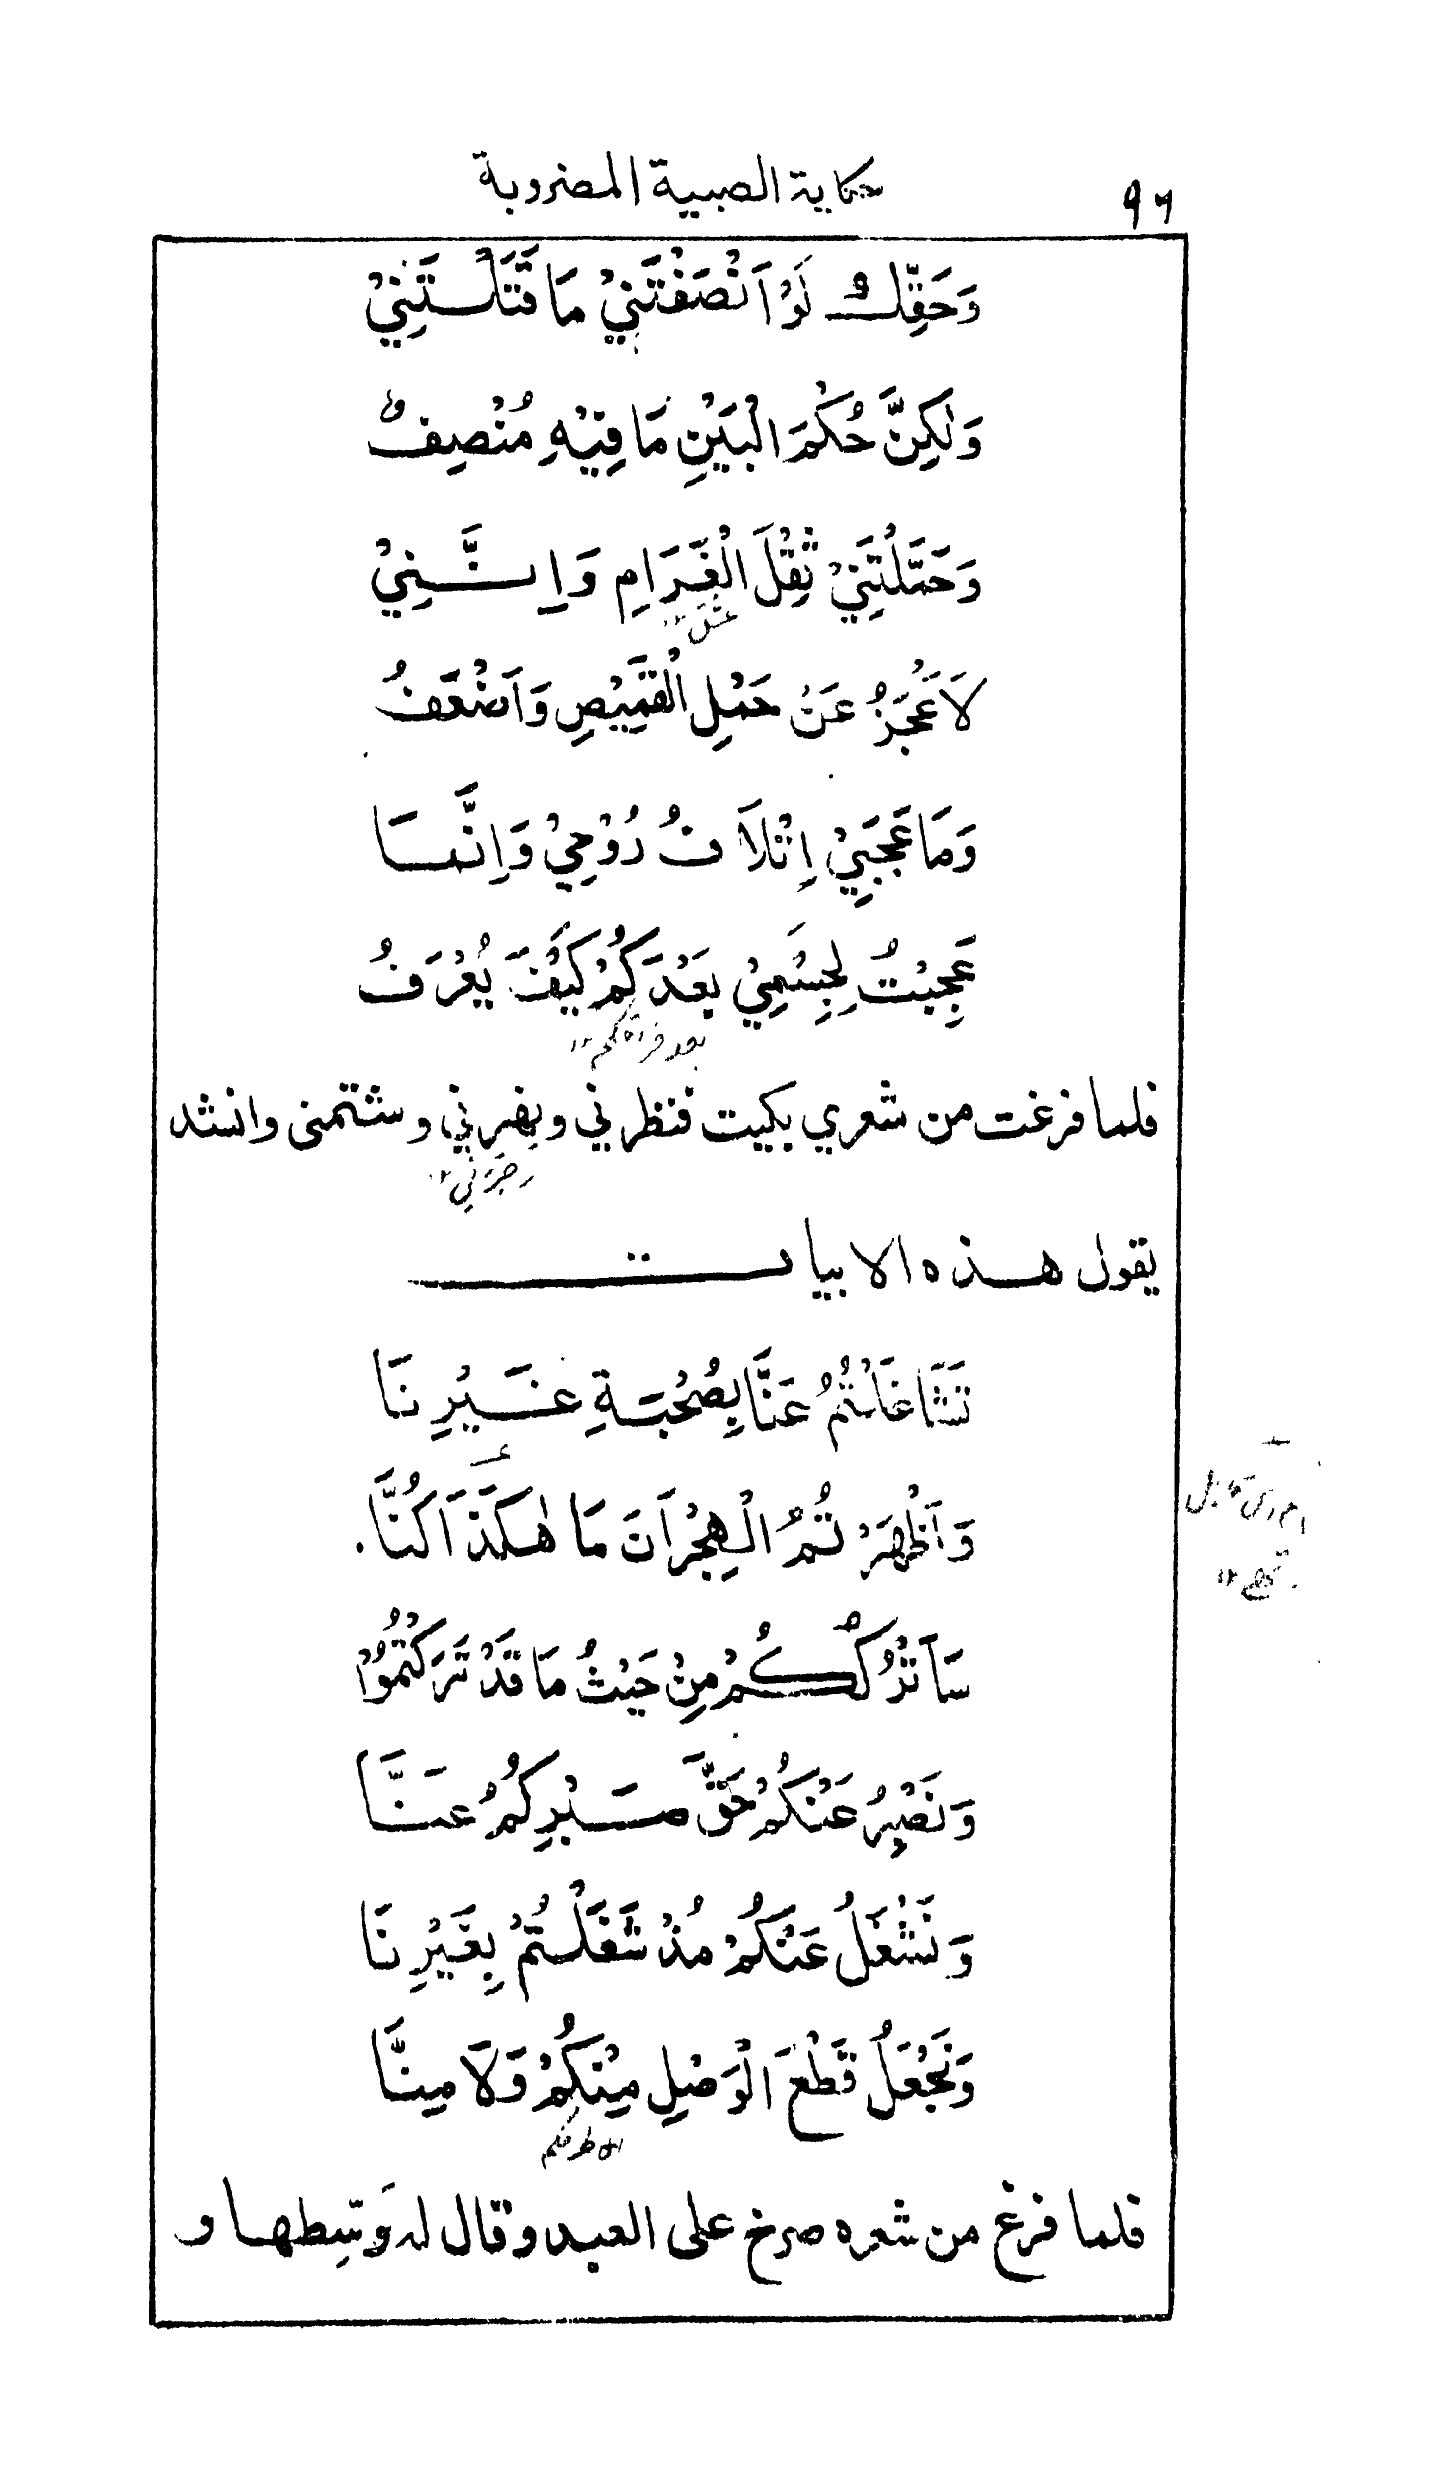 ٩٦
حكاية الصبية المضروبة
وَحَقِّكَ لَوْ اَنْصَفْتَنِيْ مَا قَتَلْتَنِيْ
وَلٰكِنَّ حُكْمَ الْبَيْنِ مَا فِيْهِ مُنْصِفٌ
وَحَمَّلْتَنِيْ ثِقْلَ الْغَرَامِ وَاِنَّنِيْ
عشق ١٢
لَاَعْجَزُ عَنْ حَمْلِ الْقَمِيْصِ وَاَضْعَفُ
وَمَا عَجَبِيْ اِتْلَافُ رُوْحِيْ وَاِنَّمَا
عَجِبْتُ لِجِسْمِيْ بَعْدَكُمْ كَيْفَ يُعْرَفُ
بعد فراقكم ١٢
فلما فرغت من شعري بكيت فنظرني وبهرني وشتمنى وانشد
زجرني ١٢
يقول هذه الابيات
تَشَاغَلْتُمُ عَنَّا بِصُحْبَةِ غَيْرِنَا
وَاَظْهَرْتُمُ الْهِجْرَانَ مَا هٰكَذَا كُنَّا
سَاَتْرُكُكُمْ مِنْ حَيْثُ مَا قَدْ تَرَكْتُمُوْا
وَنَصْبِرُ عَنْكُمْ حَقَّ صَبْرِكُمُ عَنَّا
وَنَشْغَلُ عَنْكُمْ مُذْ شَغَلْتُمْ بِغَيْرِنَا
وَنَجْعَلُ قَطْعَ الْوَصْلِ مِنْكُمْ وَلَا مِنَّا
فلما فرغ من شعره صرخ على العبد وقال له وَسِّطها و